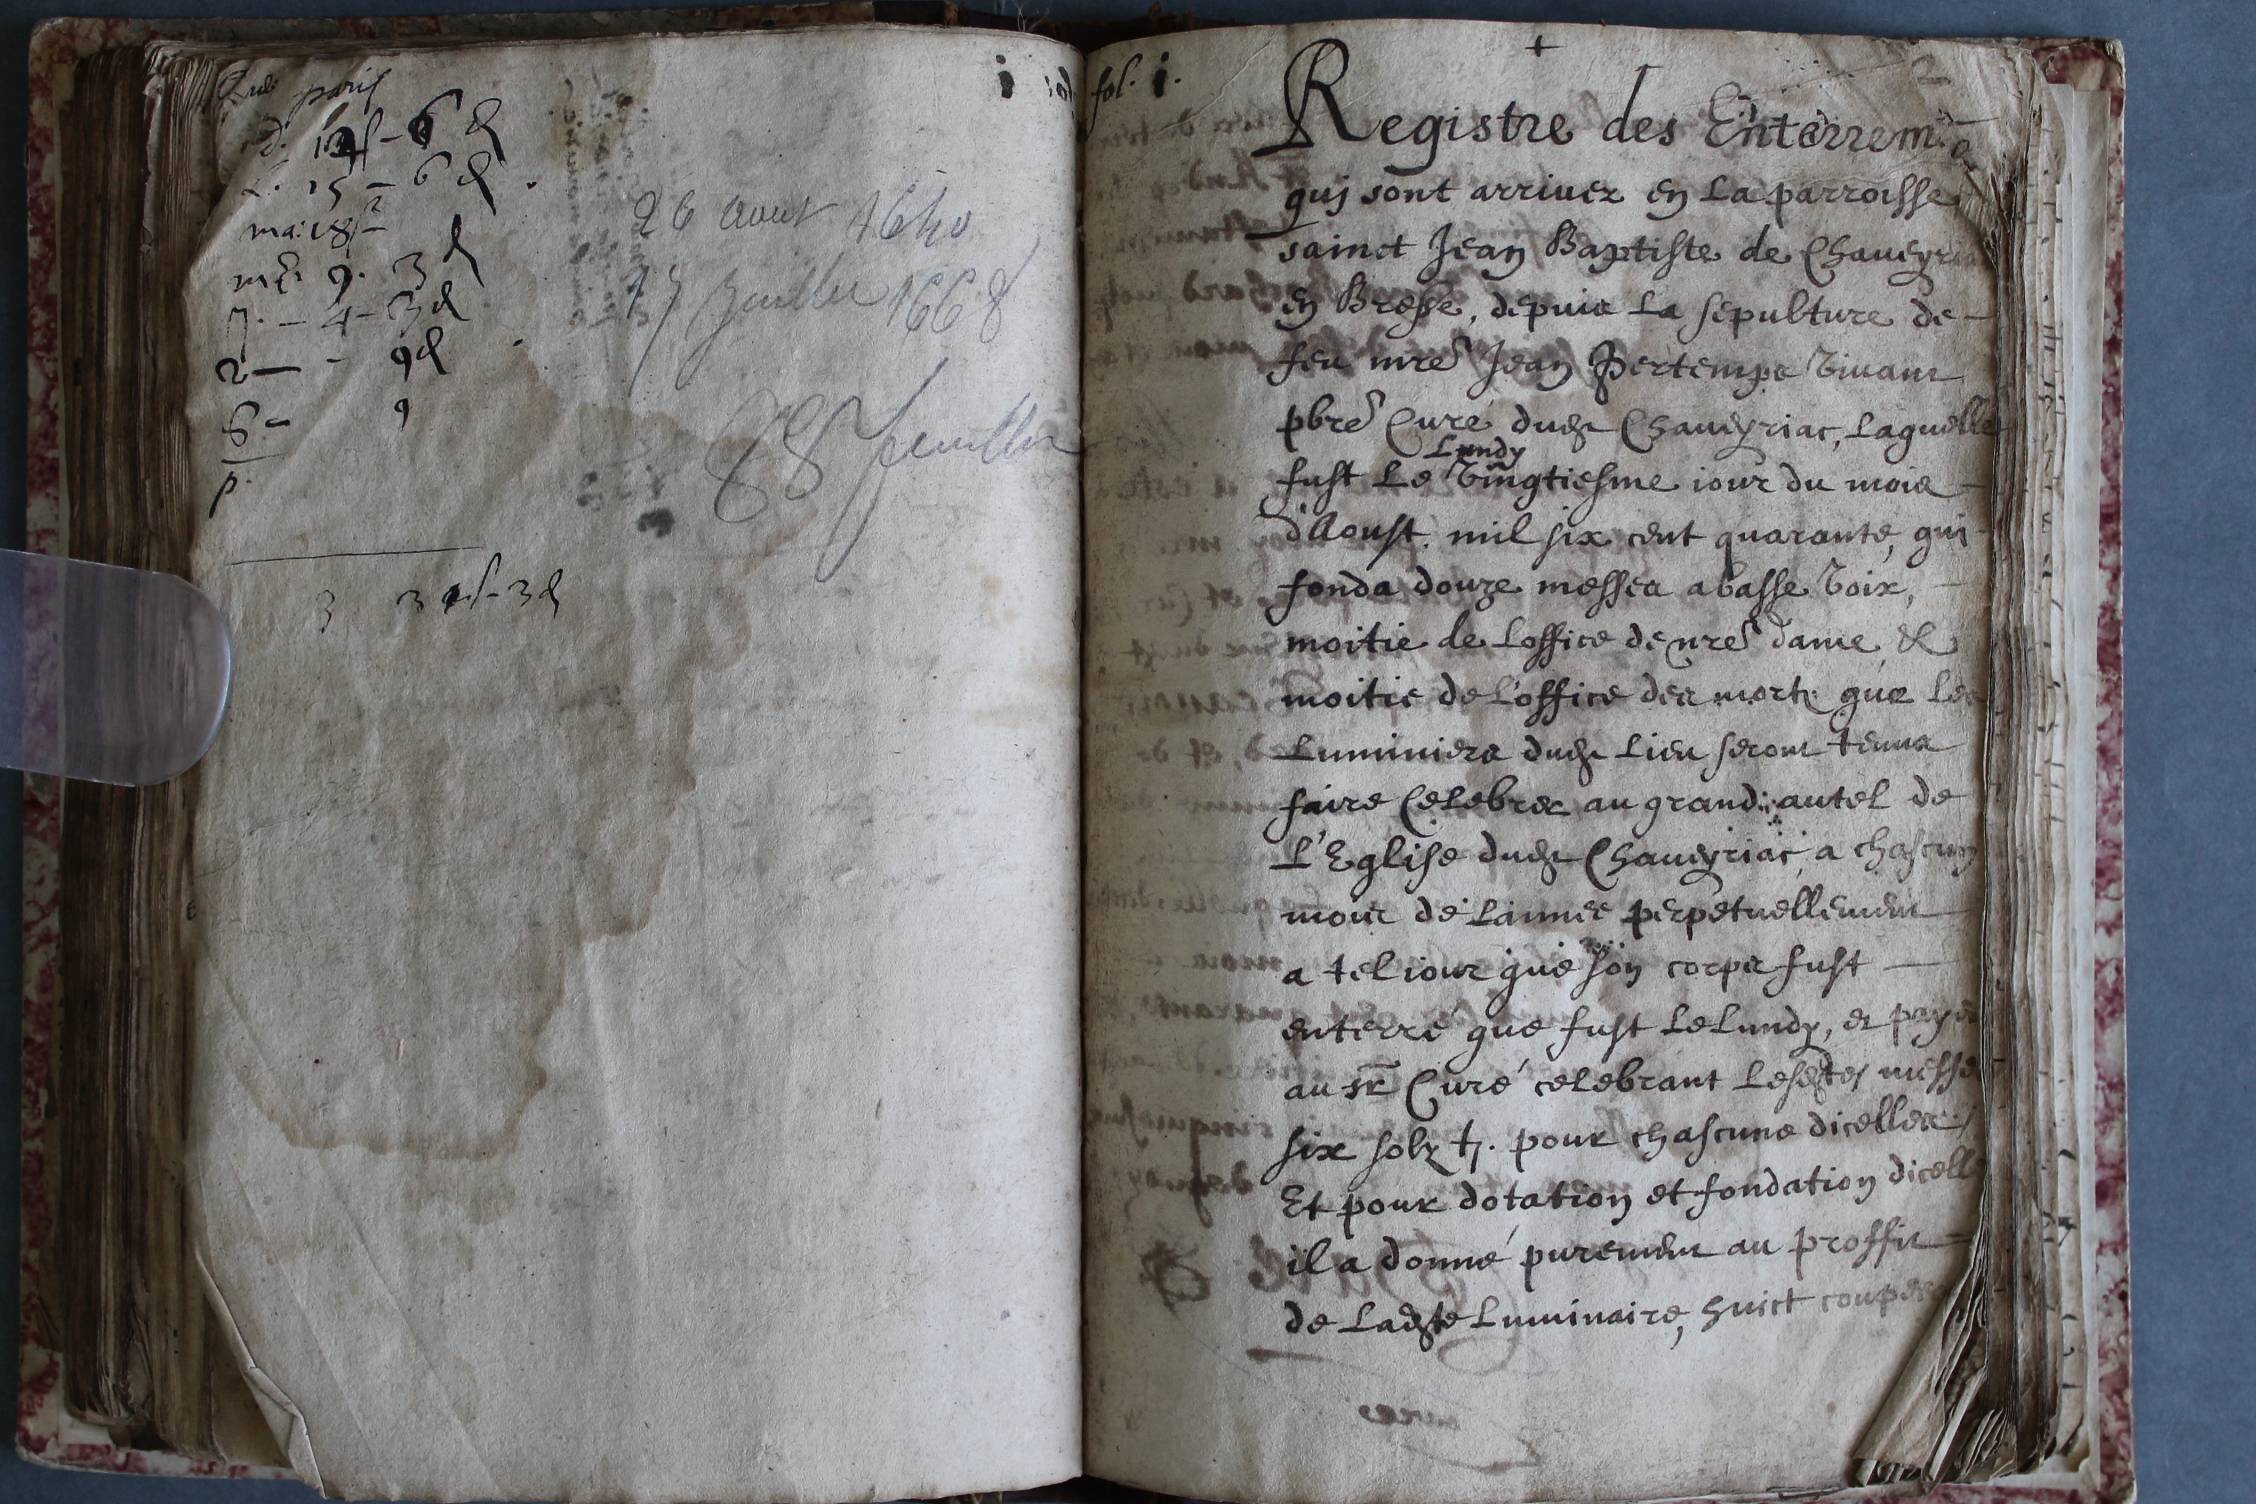 paris
15 - 6 d
ma: 18
9. 3 d
7. - 4 - 3 d
2 - 9 d
6 - 9
p.
3 3 s - 3 d
26 aout 1640
17 Juillet 1668
88 feuillets
fol. i.
Registre des Enterrem.
quj sont arriuez en La parroisse
sainct Jean Baptiste de Chaueyria
en Bresse, depuis La sepulture de -
feu mre Jean Pertemps viuant
pbre Curé dudt Chaueyriac, Laquelle
Lundy
fust Le vingtiesme iour du mois -
d'Aoust mil six cent quarante, qui
fonda douze messes a basse voix, -
moitie de Loffice de nre dame &
moitie de L'office des morts que Les
Luminiers dudt Lieu seront tenus
faire Celebrer au grand autel de
L'Eglise dudt Chaueyriac, a chascun
mois de Lannee perpetuellement
a tel iour que son corps fust -
enterré que fust Le Lundy, et payer
au sr Curé celebrant Lesdtes messes
six solz t. pour chascune dicelles,
Et pour dotation et fondation dicell
il a donné purement au proffit -
de Ladte Luminaire, huict coupes